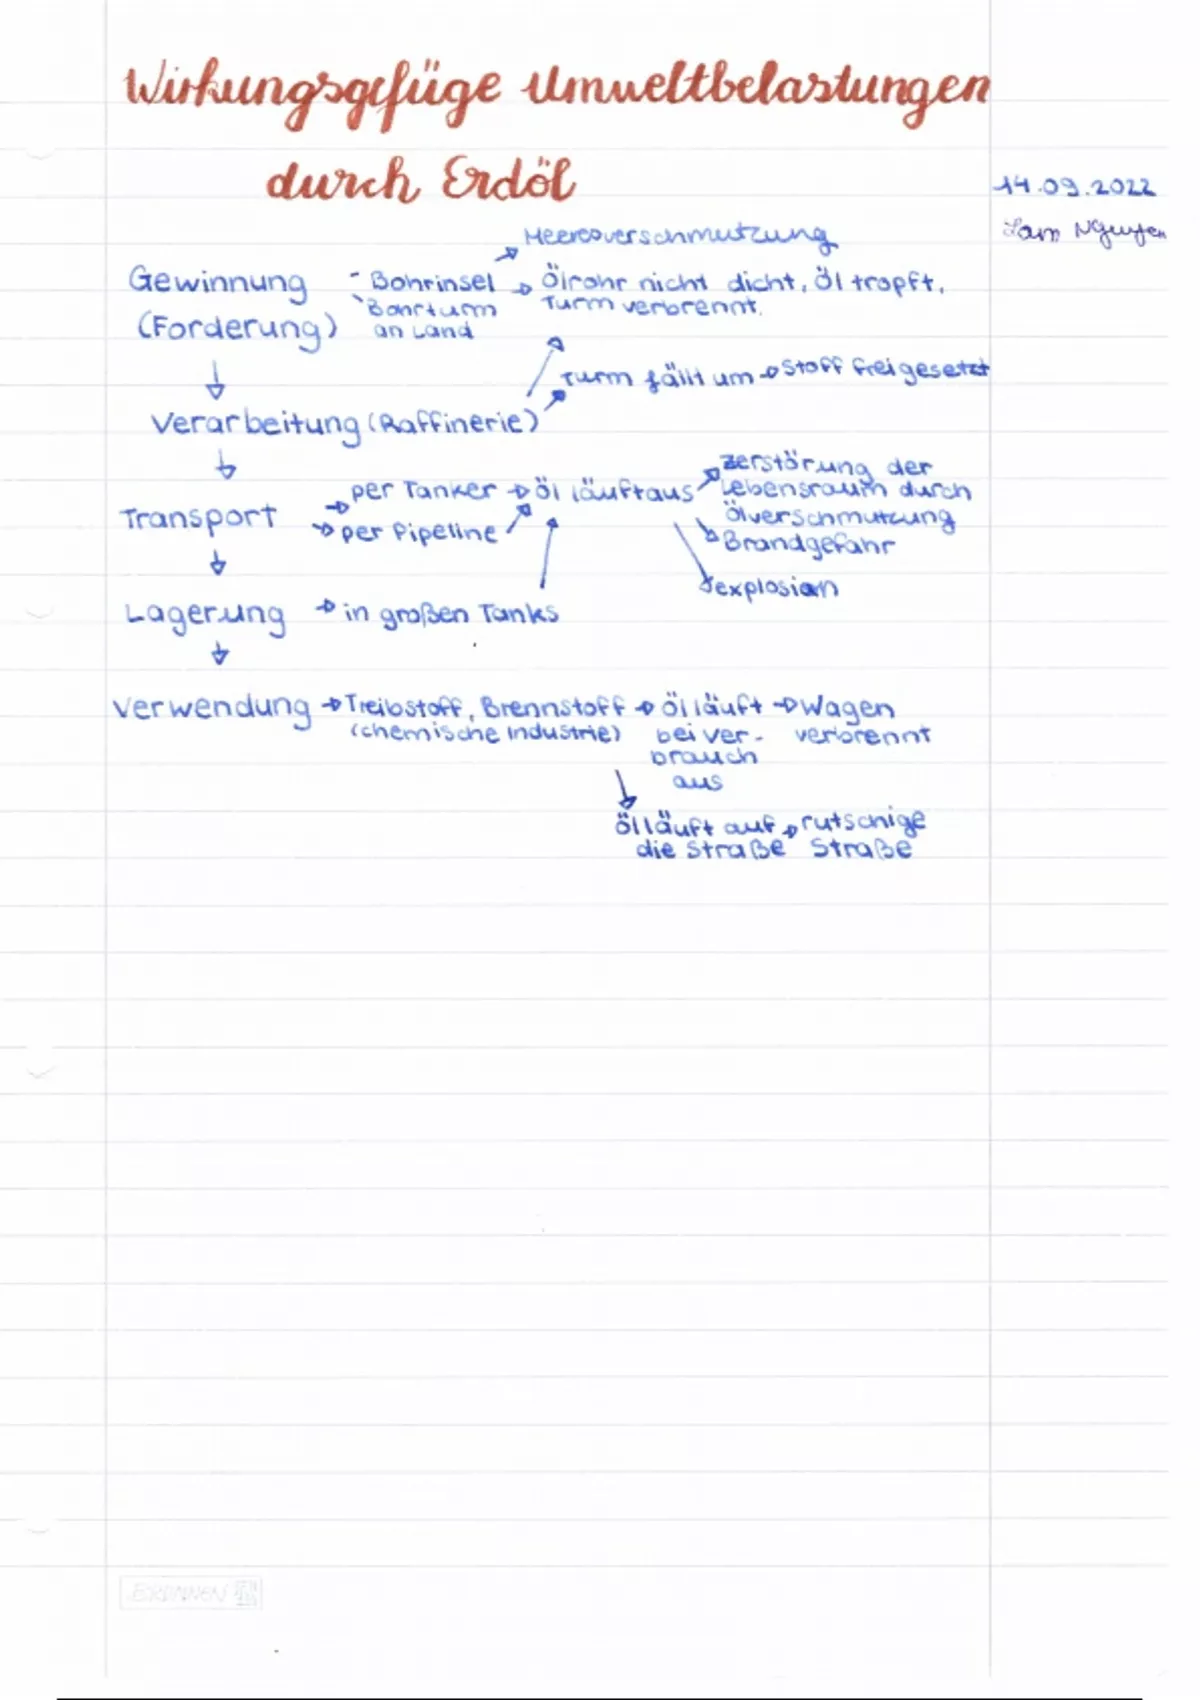 Wirkungsgefüge Umweltbelastungen
durch Erdöl
14.09.2022
Lam Nguyen
Meeresverschmutzung
Gewinnung - Bohrinsel → Ölrohr nicht dicht, Öl tropft,
Bohrturm Turm verbrennt.
(Forderung) an Land
Turm fällt um → Stoff freigesetzt
Verarbeitung (Raffinerie)
zerstörung der
per Tanker → öl läuft aus Lebensraum durch
Transport ölverschmutzung
→ per Pipeline Brandgefahr
explosion
Lagerung → in großen Tanks
Verwendung → Treibstoff, Brennstoff → öl läuft → Wagen
(chemische Industrie) bei ver- verbrennt
brauch
aus
öl läuft auf → rutschige
die Straße Straße
BRUNNEN